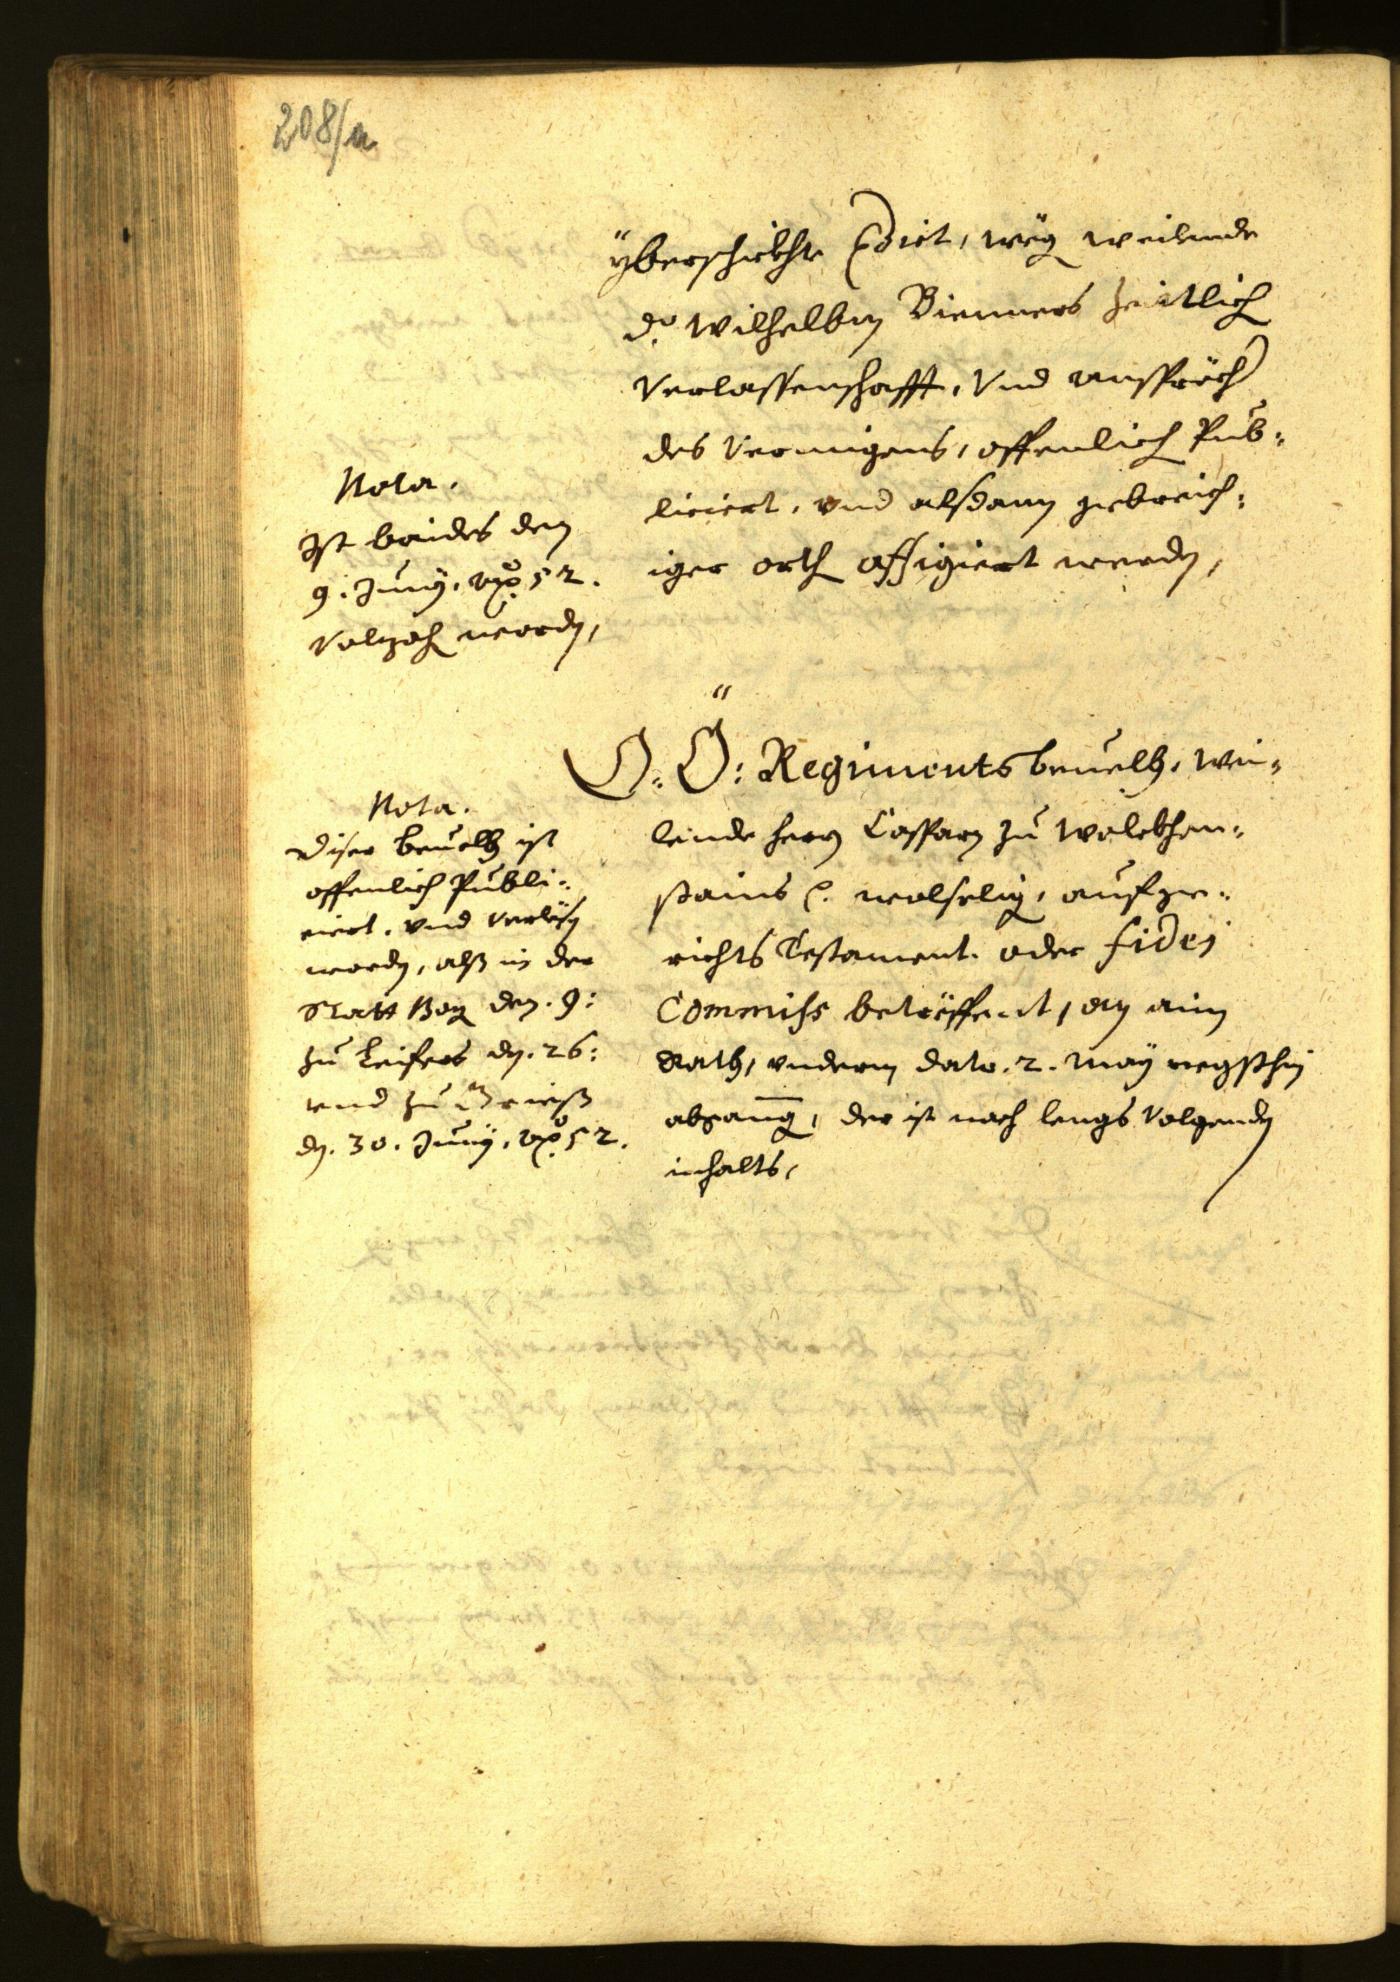 208/a
ÿberschickhte Edict, weg weilende
Dr. Wilhelbm Bienners zeitlich
Verlassenschafft, Vnd ansprüch
des Vermigens, offenlich Pub-
liciert, vnd alsdann gebreich-
iger orth affigiert werdn,
Nota.
Ist baides den
9. Junÿ, 52.
Volzoh wordn,
O: Ö: Regiments beuelh, wei-
lende herrn Casparn zu Wolckhen-
stains wolselig, aufge-
richts Testament, oder fidej
Commiss betreffent, an ain
Rath, vnderm dato. 2. Maÿ negsthin
abgangg, der ist nach lengs Volgendn
inhalts,
Nota.
Diser beuelh ist
offenlich Publi-
ciert, vnd Verlesn
wordn, alß in der
Statt Boz den. 9:
zu Leifers dn. 26:
vnd zu Grieß
dn. 30. Junÿ, 52.